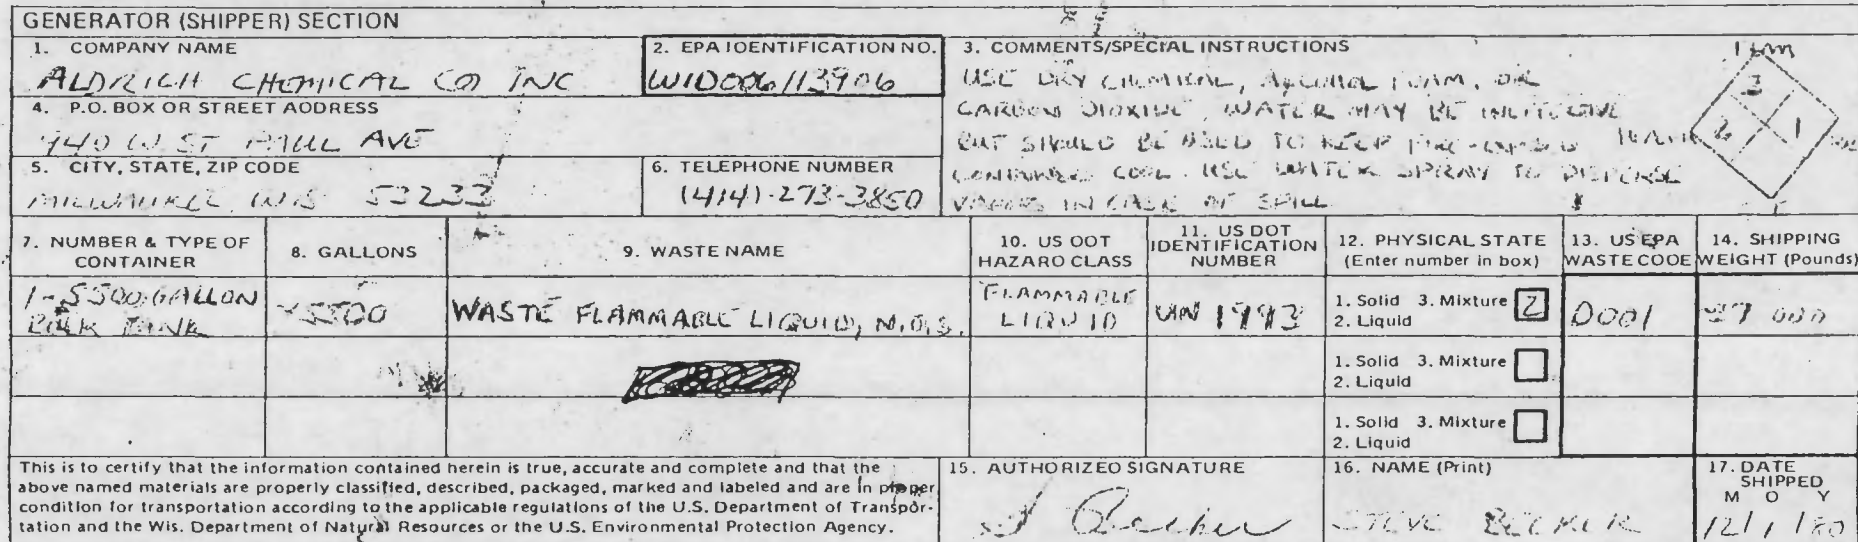 GENERATOR (SHIPPER) SECTION
1. COMPANY NAME
ALDRICH CHEMICAL CO INC
2. EPA IDENTIFICATION NO.
WID006113906
3. COMMENTS/SPECIAL INSTRUCTIONS
USE DRY CHEMICAL, ALCOHOL FOAM, OR
CARBON DIOXIDE, WATER MAY BE INEFFECTIVE
BUT SHOULD BE USED TO KEEP FIRE-EXPOSED
CONTAINERS COOL. USE WATER SPRAY TO DISPERSE
VAPORS IN CASE OF SPILL
3
2 1
4. P.O. BOX OR STREET ADDRESS
940 W ST PAUL AVE
5. CITY, STATE, ZIP CODE
MILWAUKEE, WIS 53233
6. TELEPHONE NUMBER
(414)-273-3850
7. NUMBER & TYPE OF CONTAINER
8. GALLONS
9. WASTE NAME
10. US DOT HAZARD CLASS
11. US DOT IDENTIFICATION NUMBER
12. PHYSICAL STATE (Enter number in box)
13. US EPA WASTE CODE
14. SHIPPING WEIGHT (Pounds)
1-5500 GALLON
BULK TANK
5500
WASTE FLAMMABLE LIQUID, N.O.S.
FLAMMABLE
LIQUID
UN 1993
1. Solid 3. Mixture 2
2. Liquid
D001
000
1. Solid 3. Mixture
2. Liquid
1. Solid 3. Mixture
2. Liquid
This is to certify that the information contained herein is true, accurate and complete and that the
above named materials are properly classified, described, packaged, marked and labeled and are in proper
condition for transportation according to the applicable regulations of the U.S. Department of Transpor-
tation and the Wis. Department of Natural Resources or the U.S. Environmental Protection Agency.
15. AUTHORIZED SIGNATURE
S Becker
16. NAME (Print)
STEVE BECKER
17. DATE SHIPPED
M O Y
12/1/80